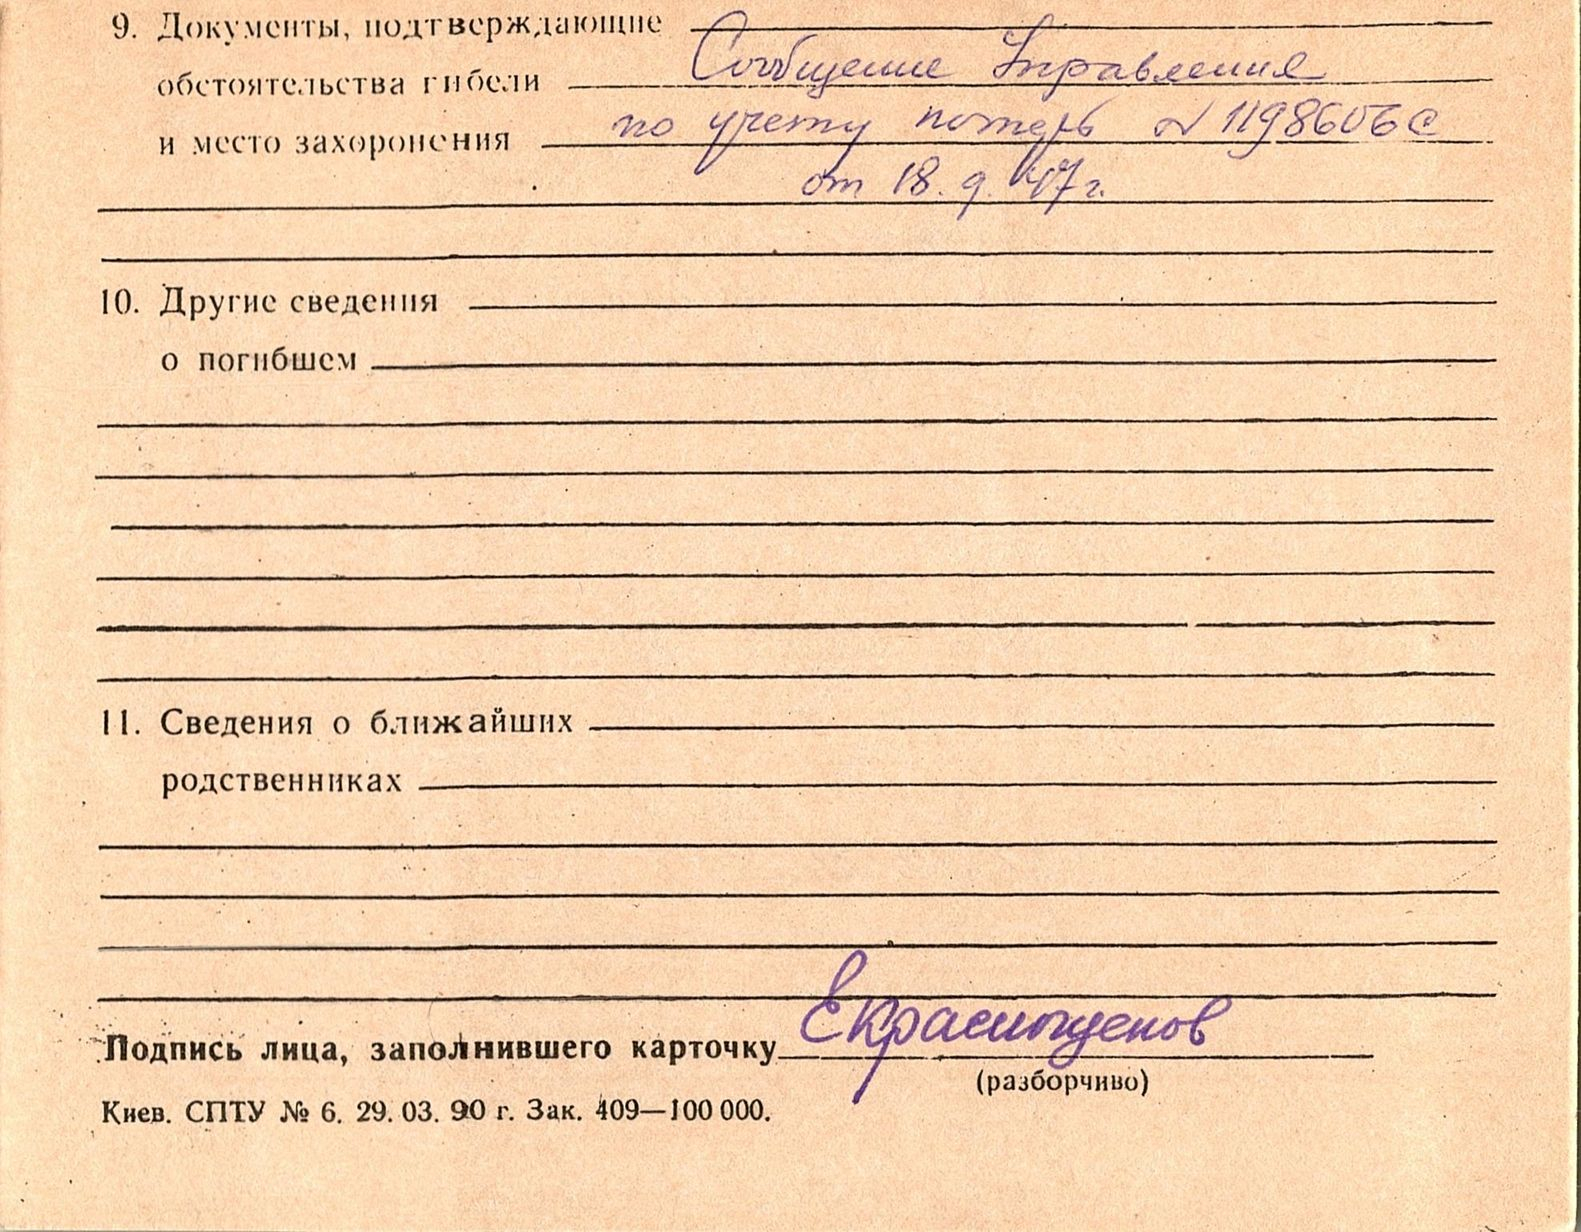 9. Документы, подтверждающие
обстоятельства гибели Сообщение Управления
и место захоронения по учету потерь № 1198606с
от 18.9.47г.
10. Другие сведения
о погибшем
11. Сведения о ближайших
родственниках
Подпись лица, заполнившего карточку
(разборчиво)
Киев. СПТУ № 6. 29. 03. 90 г. Зак. 409—100 000.